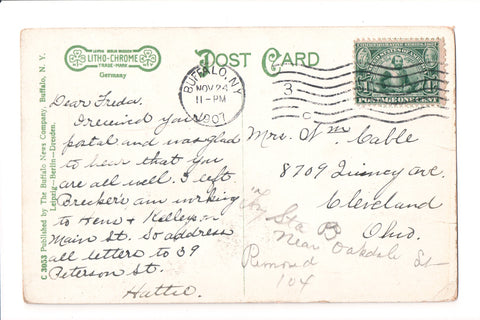 LEIPZIG BERLIN DRESDEN
LITHO-CHROME
TRADE-MARK
Germany
POST CARD
BUFFALO, N.Y.
NOV 24
11-PM
1907
3
C
POSTAGE ONE CENT
C 3053 Published by The Buffalo News Company, Buffalo, N. Y.
Leipzig—Berlin—Dresden.
Dear Freda.
I received your
postal and was glad
to hear that you
are all well. I left
Breckers am working
to Hens & Kellys on
Main St. So address
all letters to 39
Peterson St.
Hattie.
Mrs. Wm Cable
8709 Quincy ave.
Cleveland
Ohio.
Try Sta B
Near Oakdale St
104